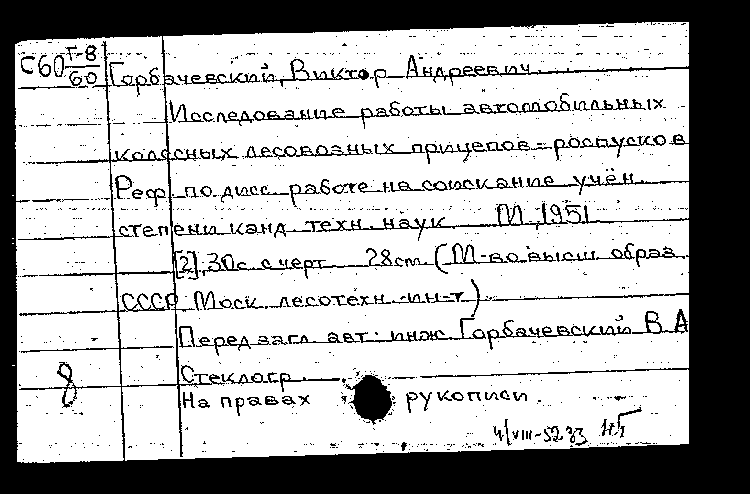 С60 Г-8/60 Горбачевский, Виктор Андреевич.
Исследование работы автомобильных
колесных лесовозных прицепов-роспусков
Реф. по дисс. работе на соискание учён.
степени канд. техн. наук М., 1951
[2], 30с. с черт. 28см. (М-во высш. образ.
СССР. Моск. лесотехн. ин-т)
Перед загл. авт.: инж. Горбачевский В.А
8 Стеклогр.
На правах рукописи.
4/VIII-52